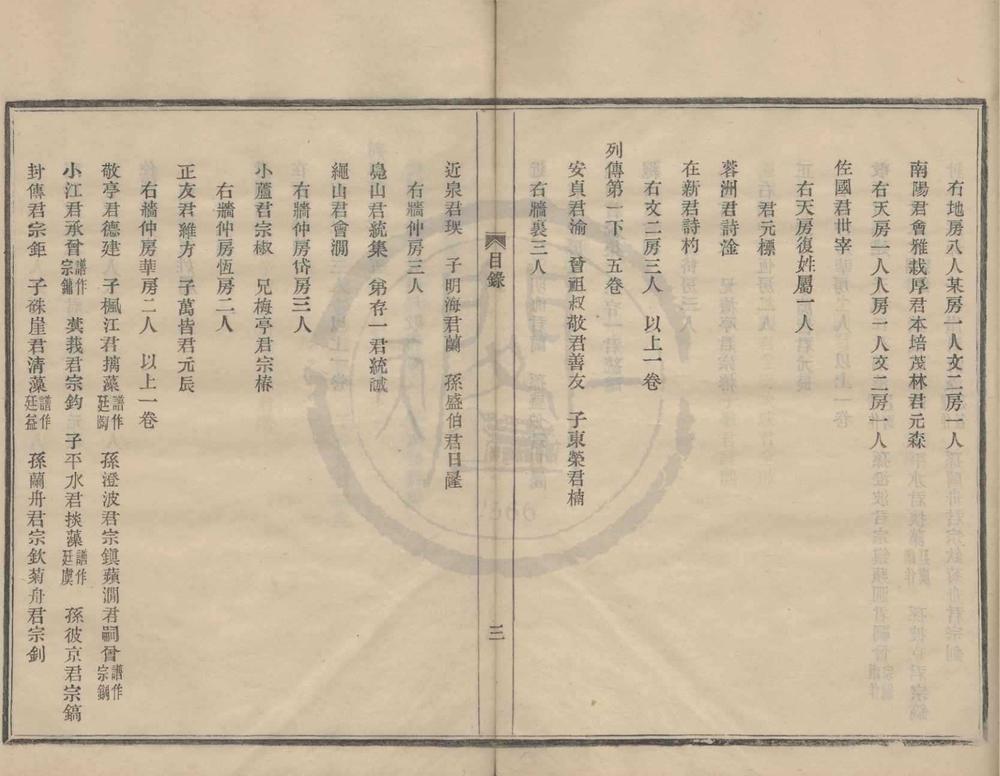 右地房八人某房一人文二房一人
南陽君會雅栽厚君本培茂林君元森
右天房一人人房一人文二房一人
佐國君世宰
右天房復姓屬一人
君元標
蓉洲君詩淦
在新君詩杓
右文二房三人　以上一卷
列傳第一下　五卷
安貞君渝　曾祖叔敬君善友　子東榮君楠
右牆裏三人
目錄
三
近泉君瑛　子明海君蘭　孫盛伯君日隆
右牆仲房三人
鳧山君統集　弟存一君統誠
繩山君會澗
右牆仲房岱房三人
小蘆君宗椒　兄梅亭君宗椿
右牆仲房恆房二人
正友君維方　子萬皆君元辰
右牆仲房華房二人　以上一卷
敬亭君德建　子楓江君摛藻譜作廷陶　孫澄波君宗鎮蘋澗君嗣曾譜作宗鍘
小江君承曾譜作宗鏞　蓂莪君宗鈞　子平水君掞藻譜作廷虞　孫彼京君宗鎬
封傳君宗鉅　子硃崖君清藻譜作廷益　孫蘭舟君宗欽菊舟君宗釗